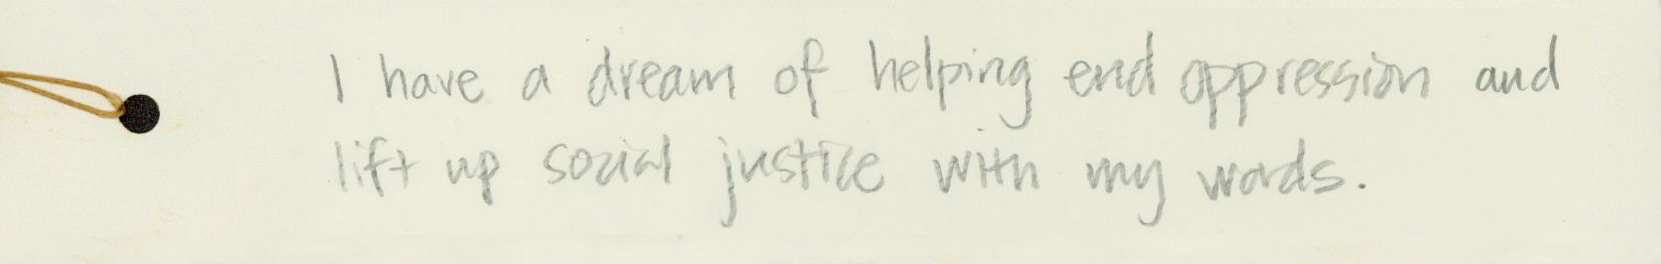 I have a dream of helping end oppression and
lift up social justice with my words.